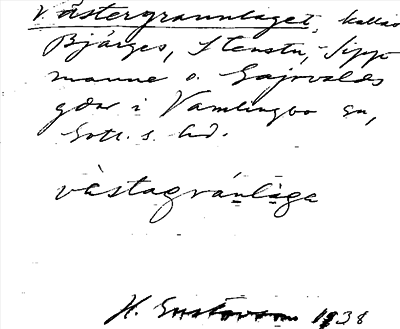 Västergrannlaget, kallas
Bjärges, Stenstu, Sipp-
manne o. Gajrvalds
gdar i Vamlingbo sn,
Gotl. s. hd.
vàstagránlàga
H. Gustavson 1938